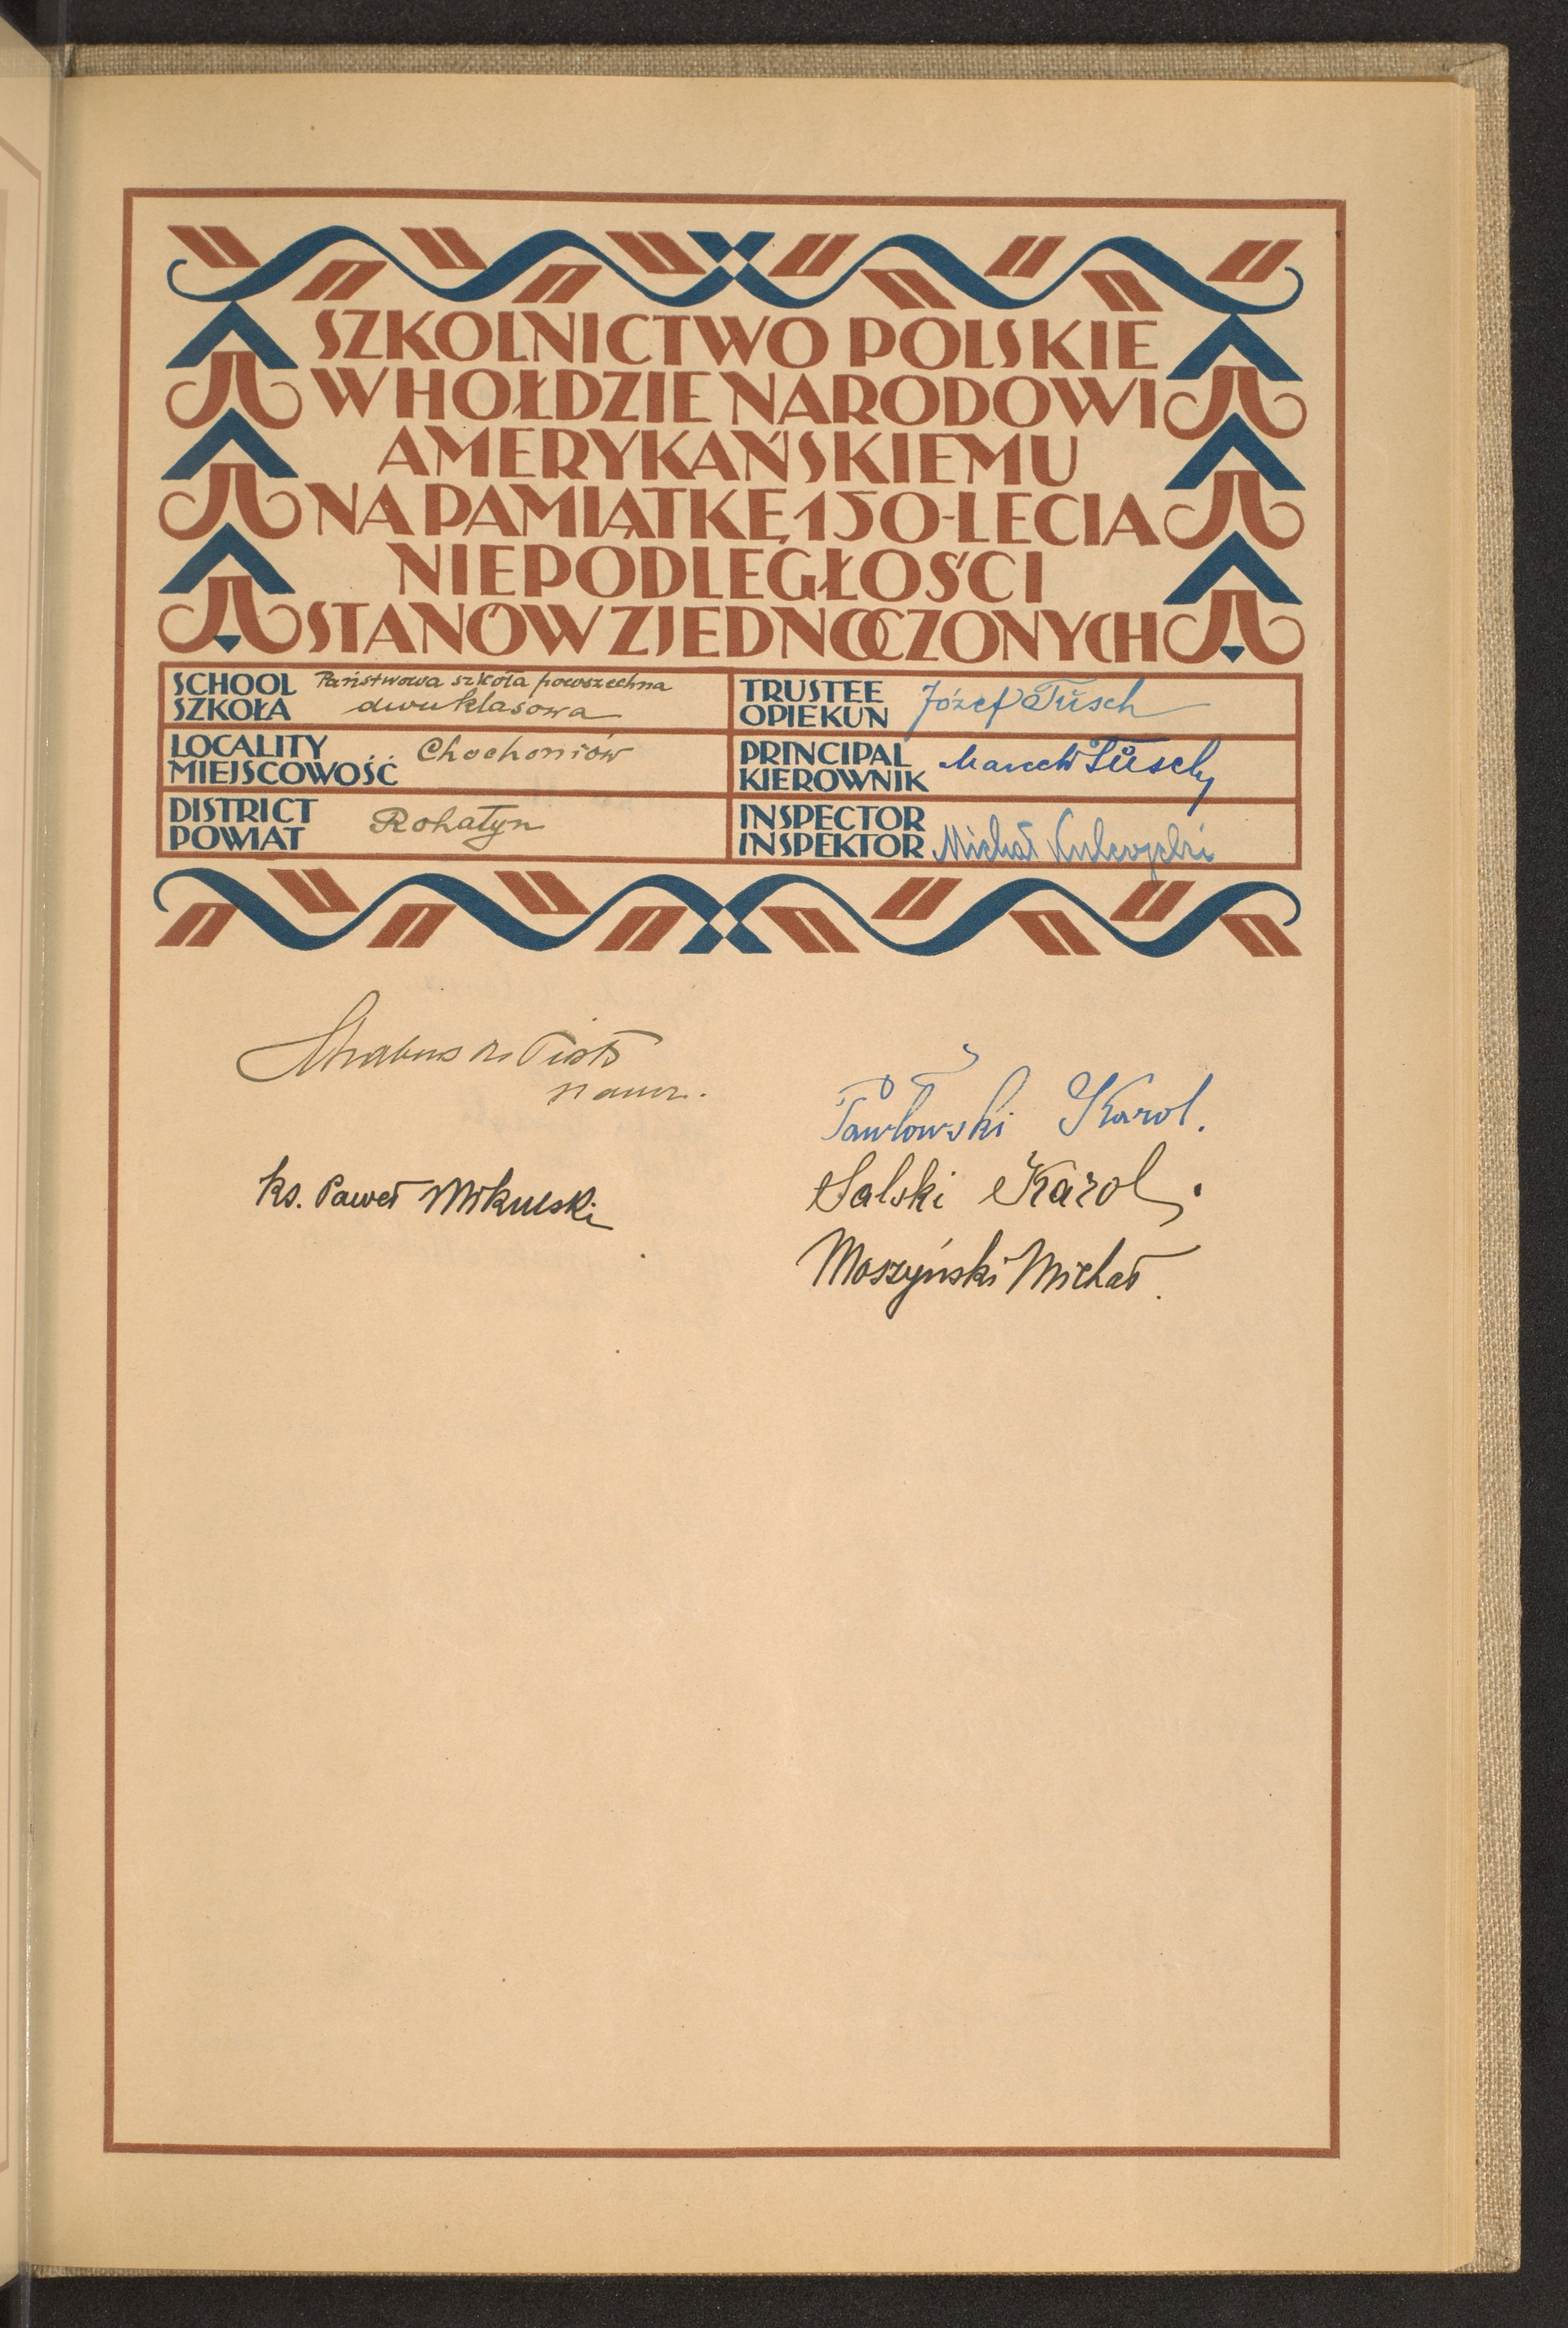 SZKOLNICTWO POLSKIE
W HOŁDZIE NARODOWI
AMERYKAŃSKIEMU
NA PAMIĄTKĘ 150-LECIA
NIEPODLEGŁOŚCI
STANÓW ZJEDNOCZONYCH
SCHOOL
SZKOŁA
Państwowa szkoła powszechna
dwuklasowa
TRUSTEE
OPIEKUN
Józef Tüsch
LOCALITY
MIEJSCOWOŚĆ
Chochoniów
PRINCIPAL
KIEROWNIK
DISTRICT
POWIAT
Rohatyn
INSPECTOR
INSPEKTOR
Michał
Piotr
naucz.
ks. Paweł Mikulski
Pawłowski Karol.
Salski Karol.
Moszyński Michał.